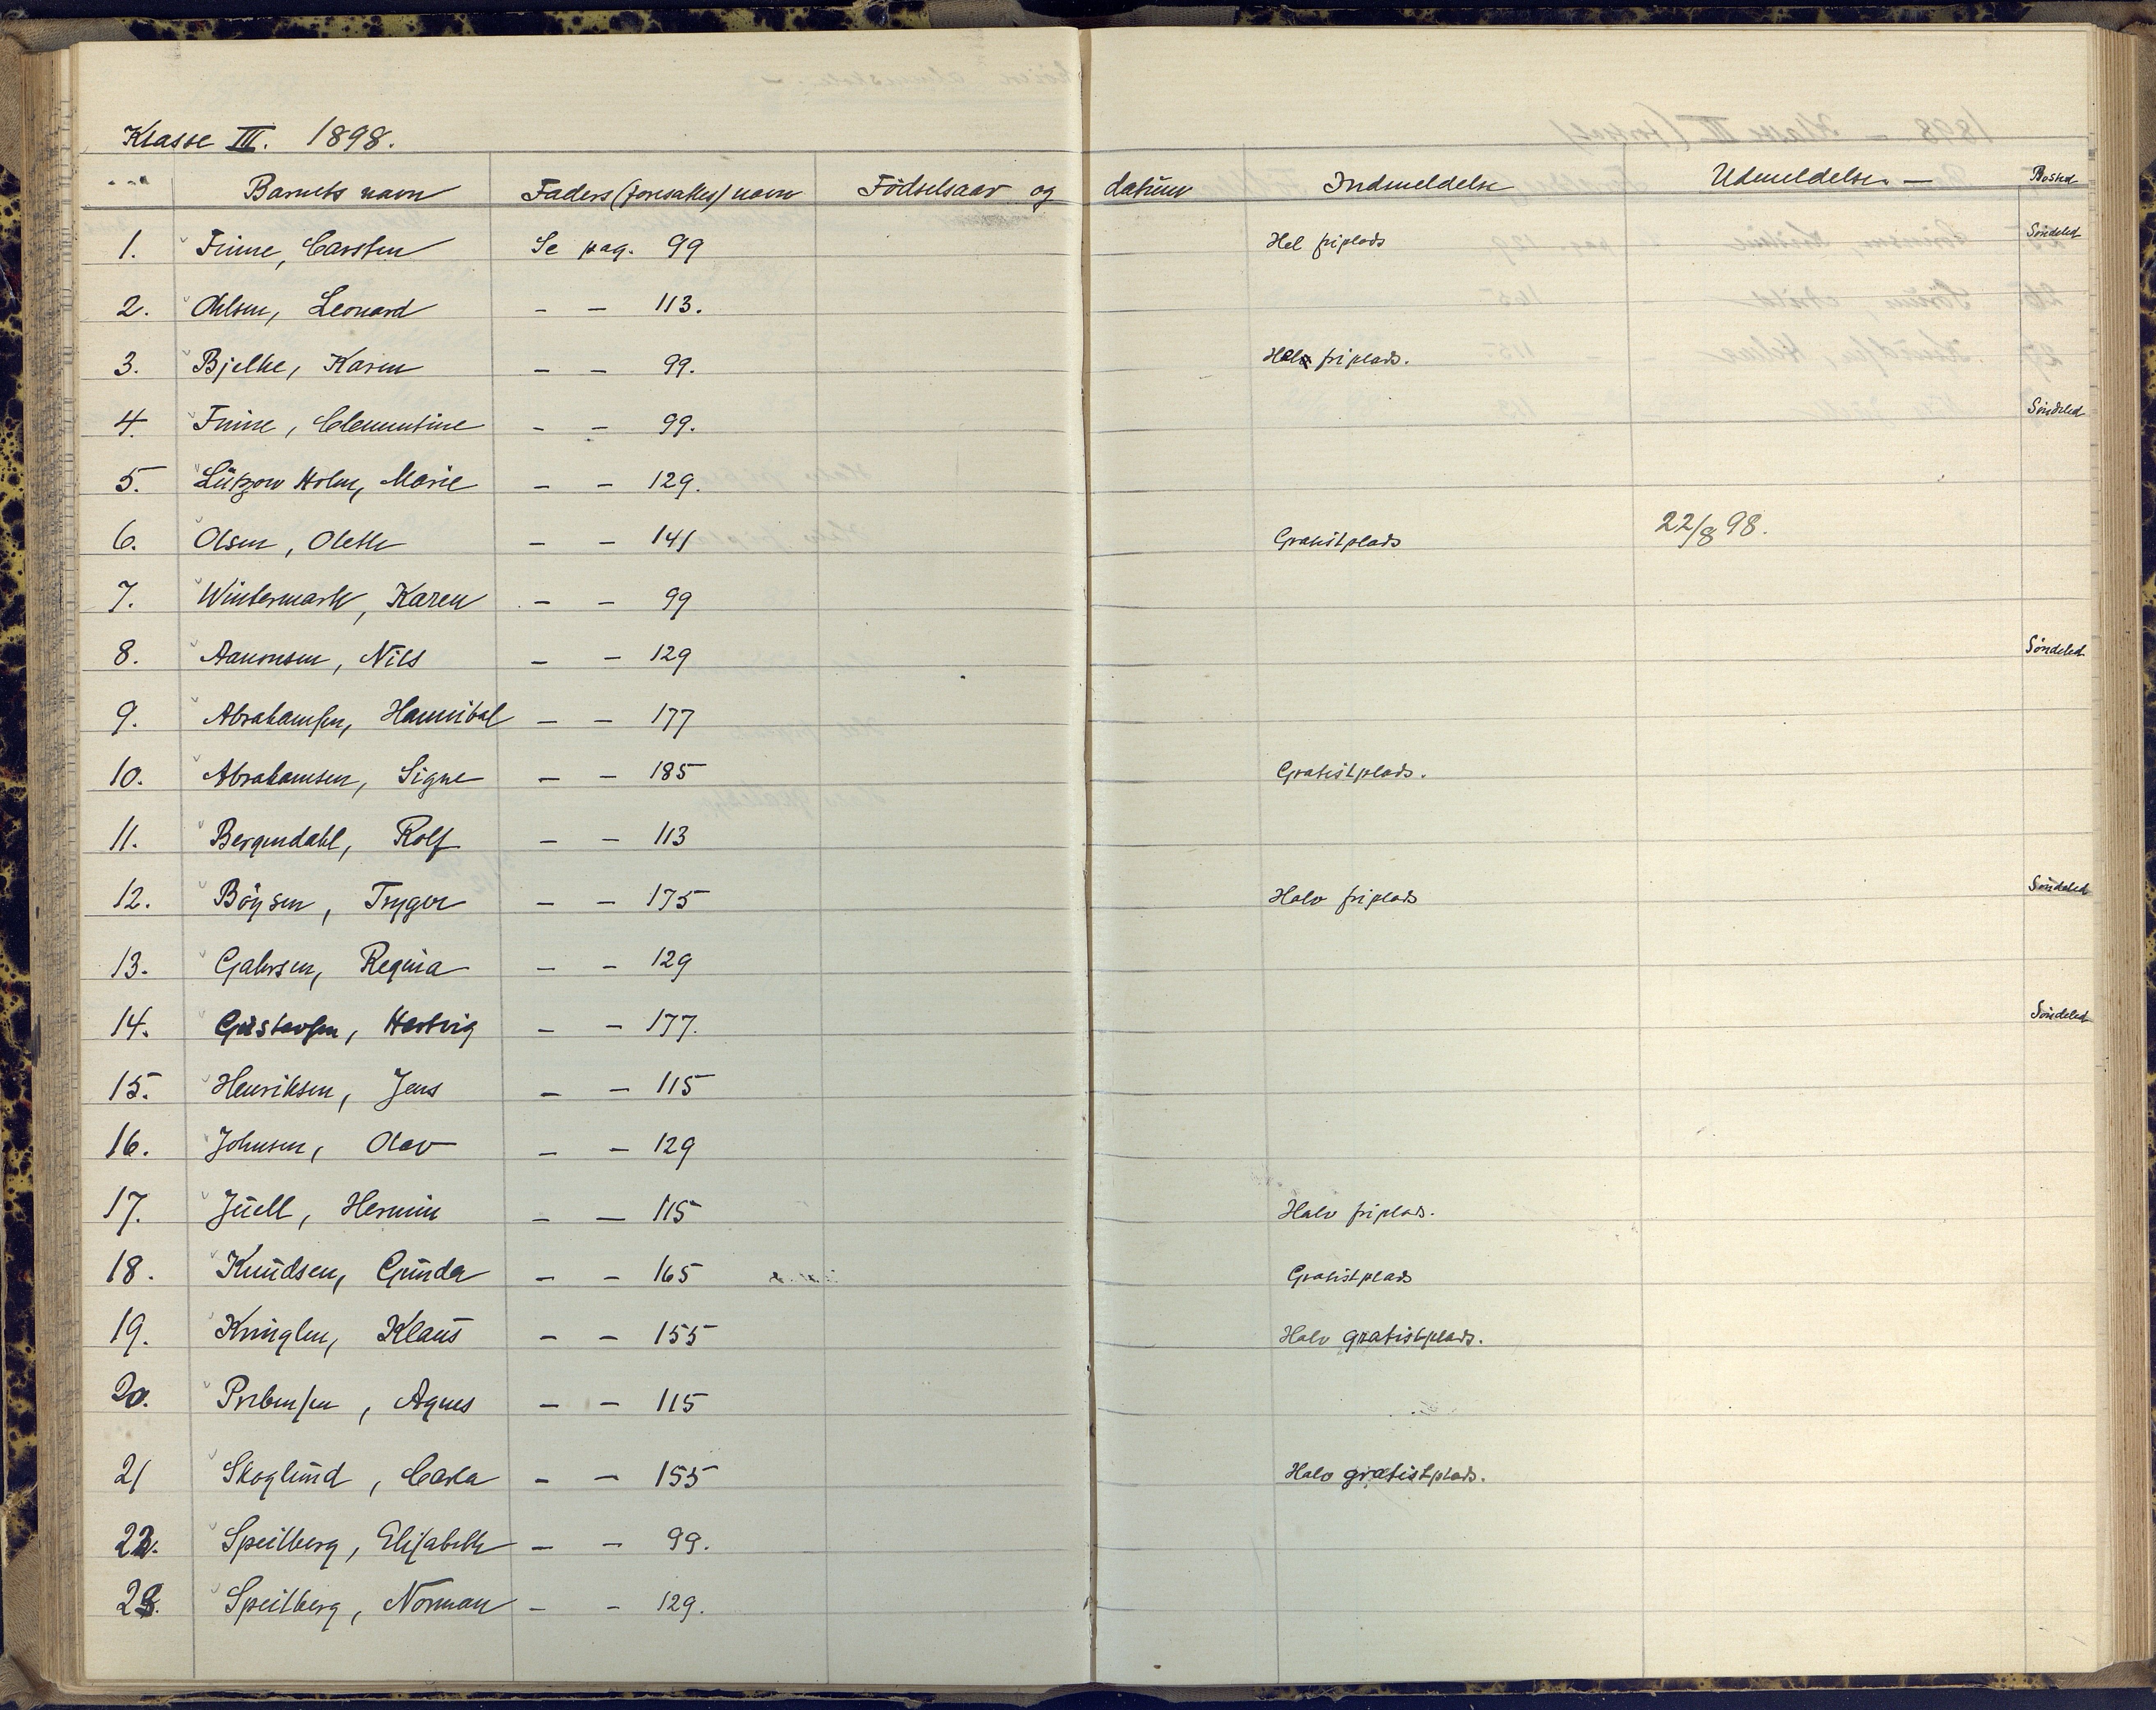 Klasse III. 1898.
Barnets navn Faders (foresattes) navn Födselsaar og datum Indmeldelse Udmeldelse — Bosted
1. Finne, Carsten Se pag. 99 Hel friplads Söndeled
2. Ohlsen, Leonard - - 113.
3. Bjelke, Karen - - 99. Halv friplads.
4. Finne, Clementine - - 99. Söndeled
5. Lützow Holm, Marie - - 129.
6. Olsen, Olette - - 141 Gratistplads 22/8 98.
7. Wintermark, Karen - - 99
8. Aanonsen, Nils - - 129 Söndeled
9. Abrahamsen, Hannibal - - 177
10. Abrahamsen, Signe - - 185 Gratistplads.
11. Bergendahl, Rolf - - 113
12. Böysen, Trygve - - 175 Halv friplads Söndeled
13. Gahrsen, Regina - - 129
14. Gustavsen, Hartvig - - 177. Söndeled
15. Henriksen, Jens - - 115
16. Johnsen, Olav - - 129
17. Juell, Hermin - - 115 Halv friplads.
18. Knudsen, Gunda - - 165 Gratistplads
19. Kringlen, Klaus - - 155 Halv gratistplads.
20. Prebensen, Agnes - - 115
21 Skoglund, Carla - - 155 Halv gratistplads.
22. Speilberg, Elisabeth - - 99.
23. Speilberg, Norman - - 129.